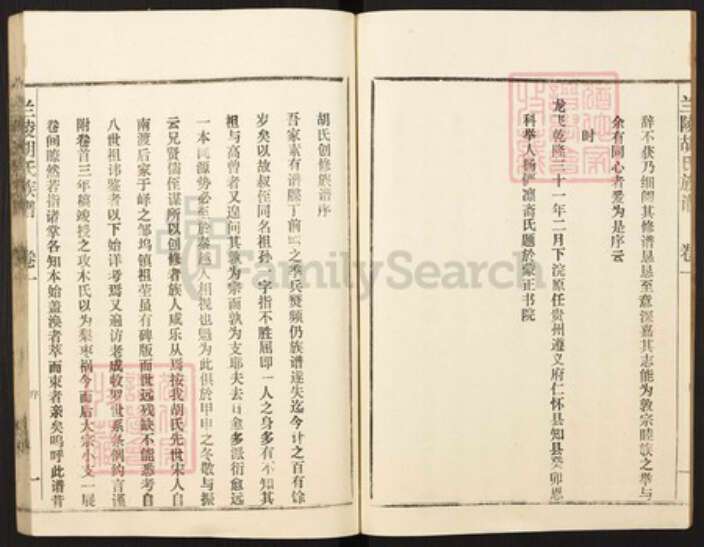 兰陵胡氏族谱 卷一
辞不获乃细阅其修谱昆昆至意深嘉其志能为敦宗睦族之举与
余有同心者爰为是序云
时
龙飞乾隆三十一年二月下浣原任贵州遵义府仁怀县知县癸卯恩
科举人杨 氏题於蒙正书院
胡氏创修族谱序
吾家素有谱牒丁前 之季兵燹频仍族谱遂失迄今计之百有馀
岁矣以故叔侄同名祖孙 字指不胜屈即一人之身多有不知其
祖与高曾者又遑问其孰为宗而孰为支耶夫去日愈多派衍愈远
一本同源势必至於秦越人相视也 为此惧於甲申之冬敬与振
云兄贤儒侄谋所以创修者族人咸乐从焉按我胡氏先世宋人自
南渡后家于峄之邹坞镇祖茔虽有碑版而世远残缺不能悉考自
八世祖讳鉴者以下始详考焉又遍访老成敬 世系条例约言谨
附卷首三年稿竣授之攻木氏以为梨枣祸今而后大宗小支一展
卷间瞭然若指诸掌各知本始盖涣者萃而束者亲矣呜呼此谱昔
兰陵胡氏族谱 卷一
序
一
FamilySearch